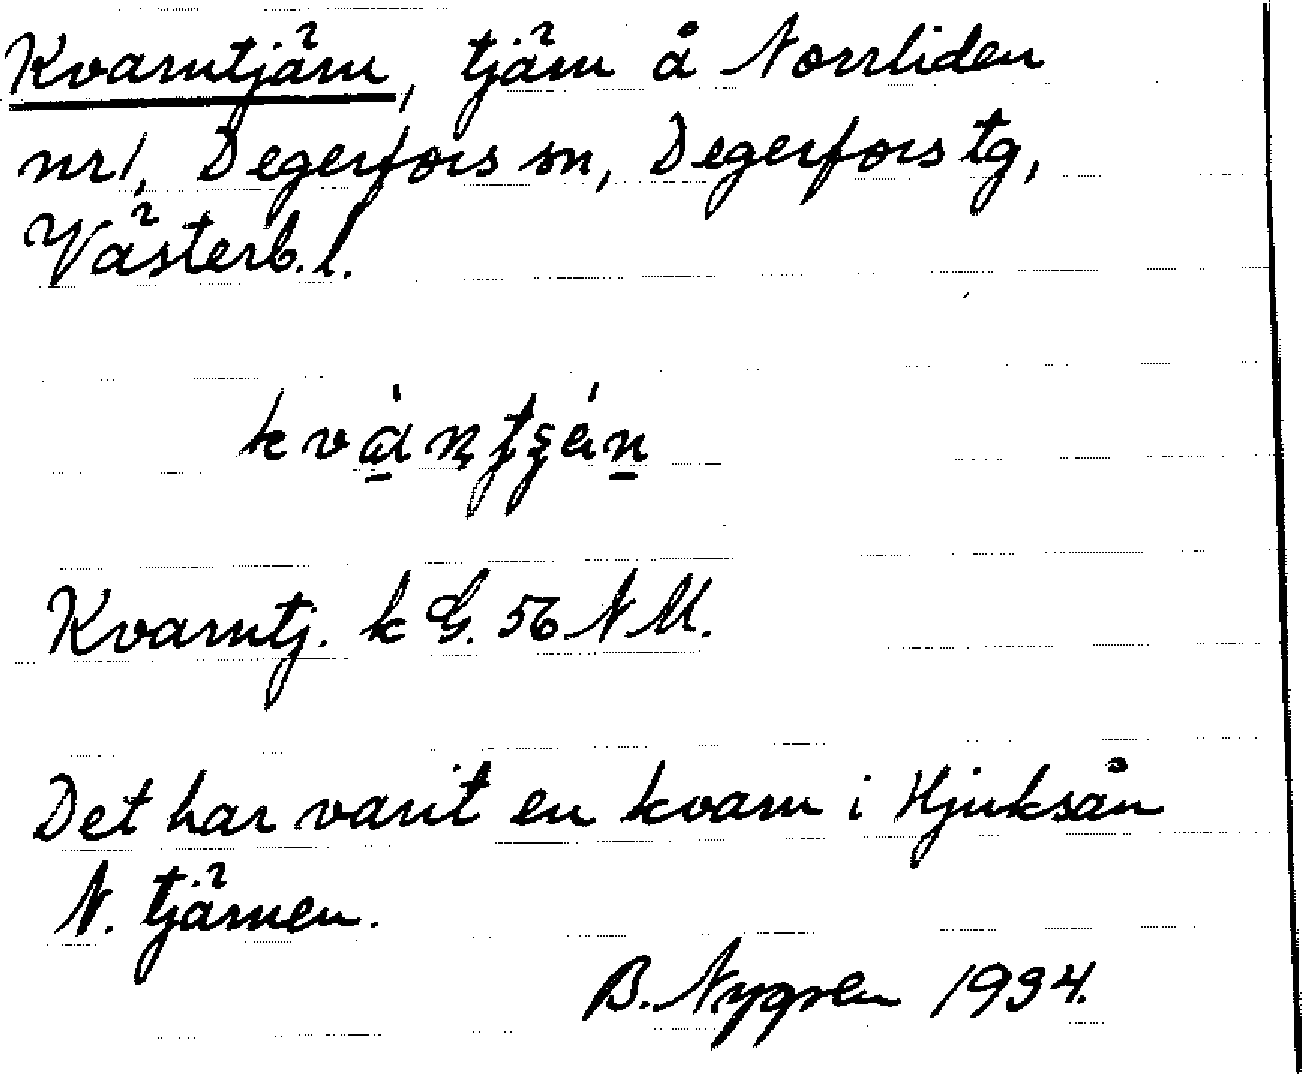 Kvarntjärn, tjärn å Norrliden
nr 1, Degerfors sn, Degerfors tg,
Västerb. l.
Kvarntj. k G. 56 N M.
Det har varit en kvarn i Hjuksån
N. tjärnen.
B. Nygren 1934.